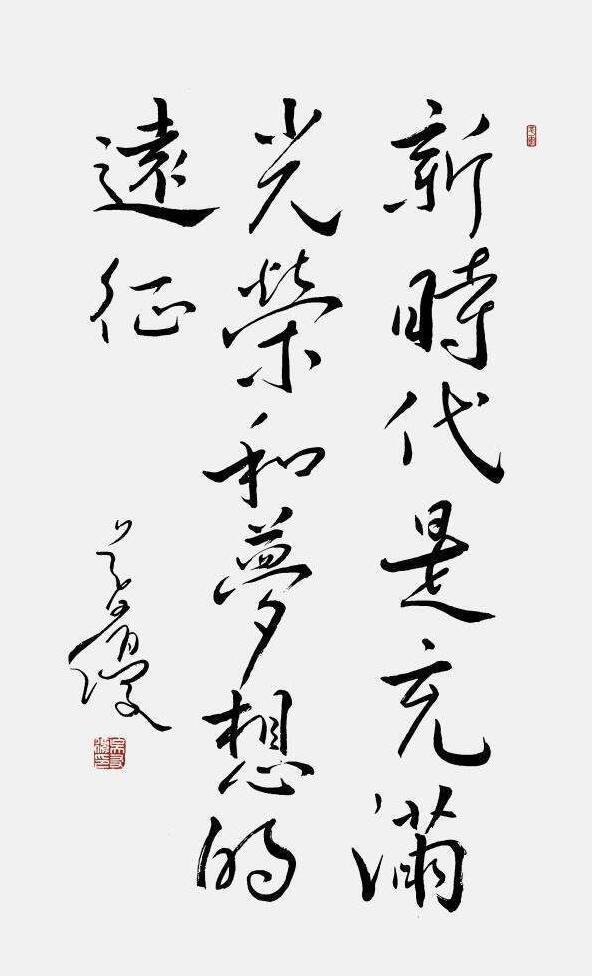 新時代是充滿
光榮和夢想的
遠征